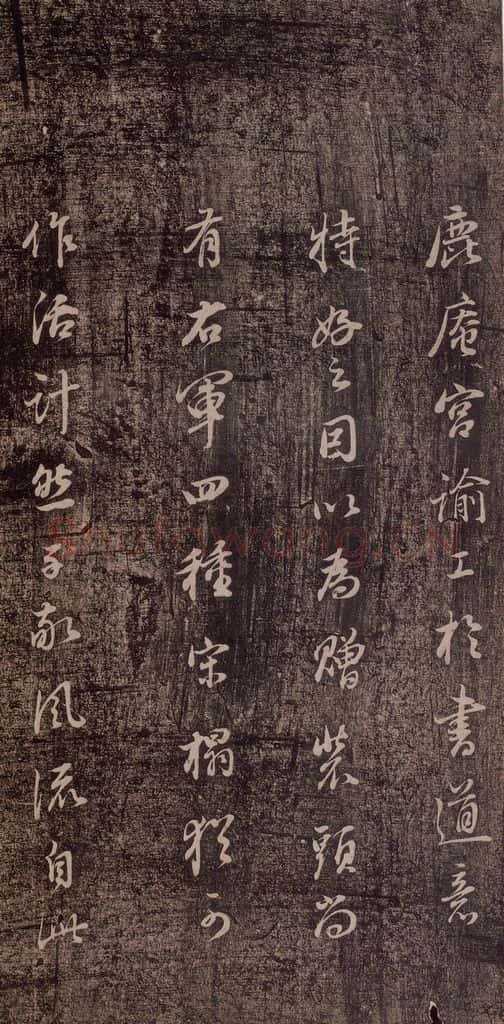 鹿庵宫谕工於書道意
特好之因以為贈裝頭尚
有右軍四種宋榻猶可
作活計然子敬風流自此